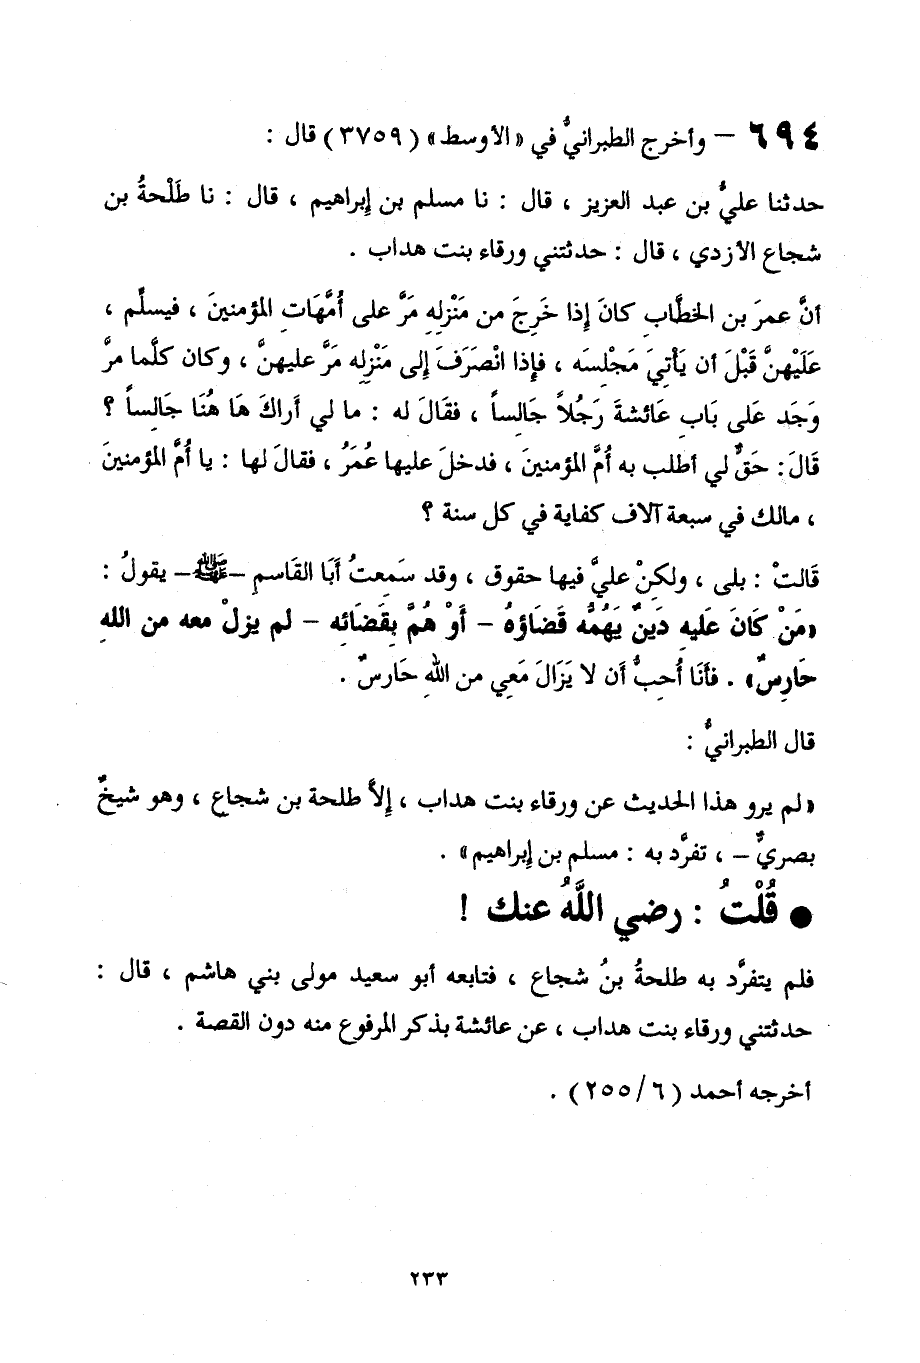 ٦٩٤ – وأخرج الطبرانيُّ في «الأوسط» (٣٧٥٩) قال :
حدثنا عليُّ بن عبد العزيز ، قال : نا مسلم بن إبراهيم ، قال : نا طَلْحةُ بن
شجاع الأزدي ، قال : حدثتني ورقاء بنت هداب .
أنَّ عمرَ بن الخطَّاب كانَ إذا خَرجَ من مَنْزلِه مَرَّ على أُمَّهَات المؤمنينَ ، فيسلِّم ،
عَلَيْهنَّ قَبْلَ أن يَأتيَ مَجْلسَه ، فإذا انْصَرَفَ إلى مَنْزِله مَرَّ عليهنَّ ، وكان كلَّما مرَّ
وَجَد عَلى بَابِ عَائشةَ رَجُلاً جَالساً ، فقَالَ له : ما لي أَراكَ هَا هُنَا جَالِساً ؟
قَالَ: حَقٌّ لي أطلب به أُمَّ المؤمنينَ ، فدخلَ عليها عُمَرُ ، فقالَ لها : يا أُمَّ المؤمنينَ
، مالك في سبعة آلاف كفاية في كل سنة ؟
قَالتْ : بلى ، ولكنْ عليَّ فيها حقوق ، وقد سَمِعتُ أبَا القَاسمِ –ﷺ– يقولُ :
«مَنْ كَانَ عَليه دَينٌ يَهُمُّه قَضَاؤهُ – أَوْ هُمَّ بِقَضَائه – لم يزلْ معه من الله
حَارسٌ» . فأنَا أُحبُّ أن لا يَزَالَ مَعي من اللهِ حَارسٌ .
قال الطبرانيُّ :
«لم يرو هذا الحديث عن ورقاء بنت هداب ، إلاَّ طلحة بن شجاع ، وهو شيخٌ
بصريٌّ – ، تفرَّد به : مسلم بن إبراهيم» .
● قُلْتُ : رضي اللَّهُ عنك !
فلم يتفرَّد به طلحةُ بنُ شجاع ، فتابعه أبو سعيد مولى بني هاشم ، قال :
حدثتني ورقاء بنت هداب ، عن عائشة بذكر المرفوع منه دون القصة .
أخرجه أحمد (٦/٢٥٥) .
٢٣٣